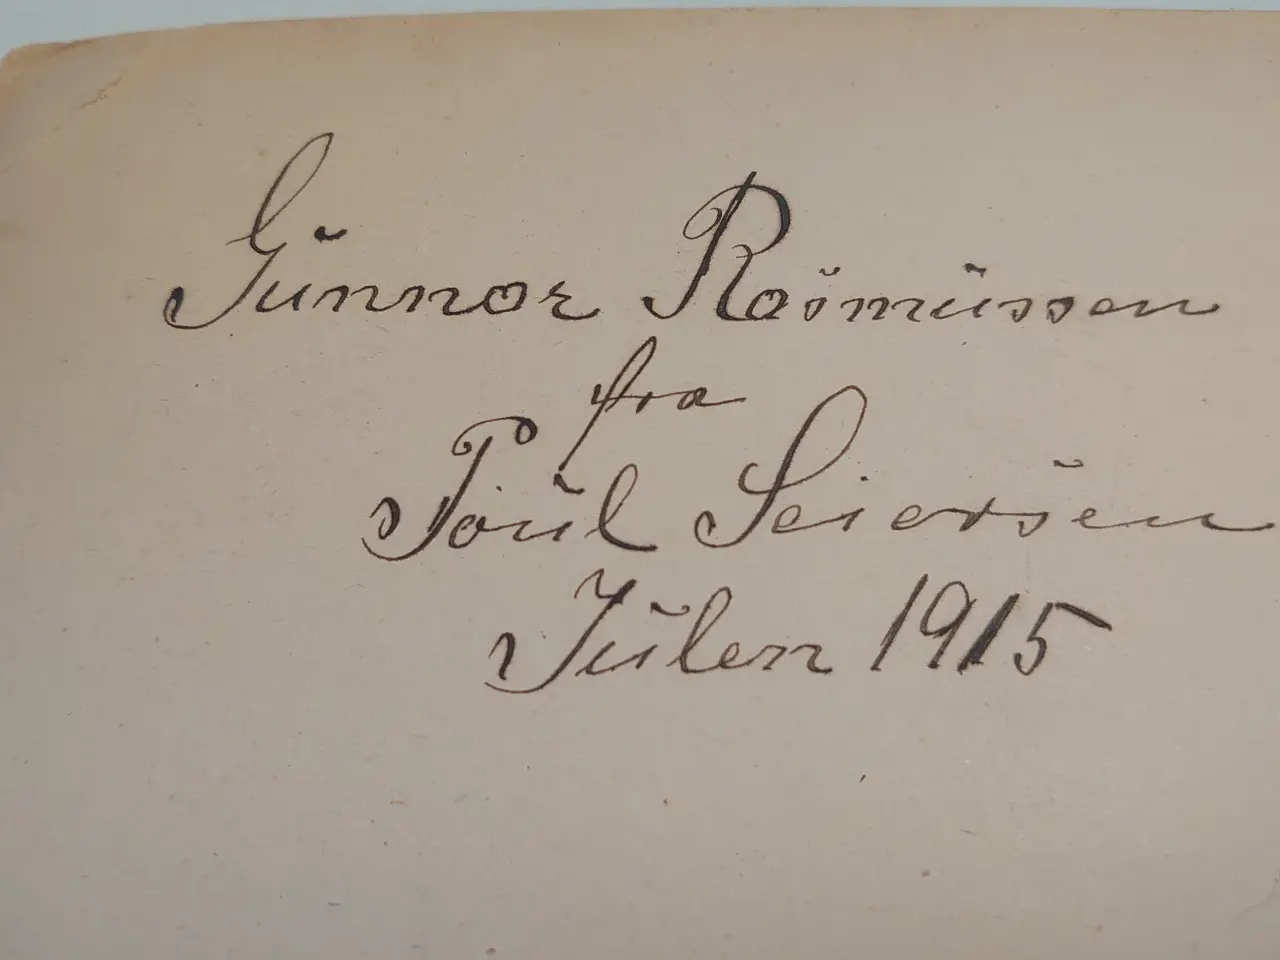 Gunnar Rasmussen
fra
Poul Seiersen
Julen 1915